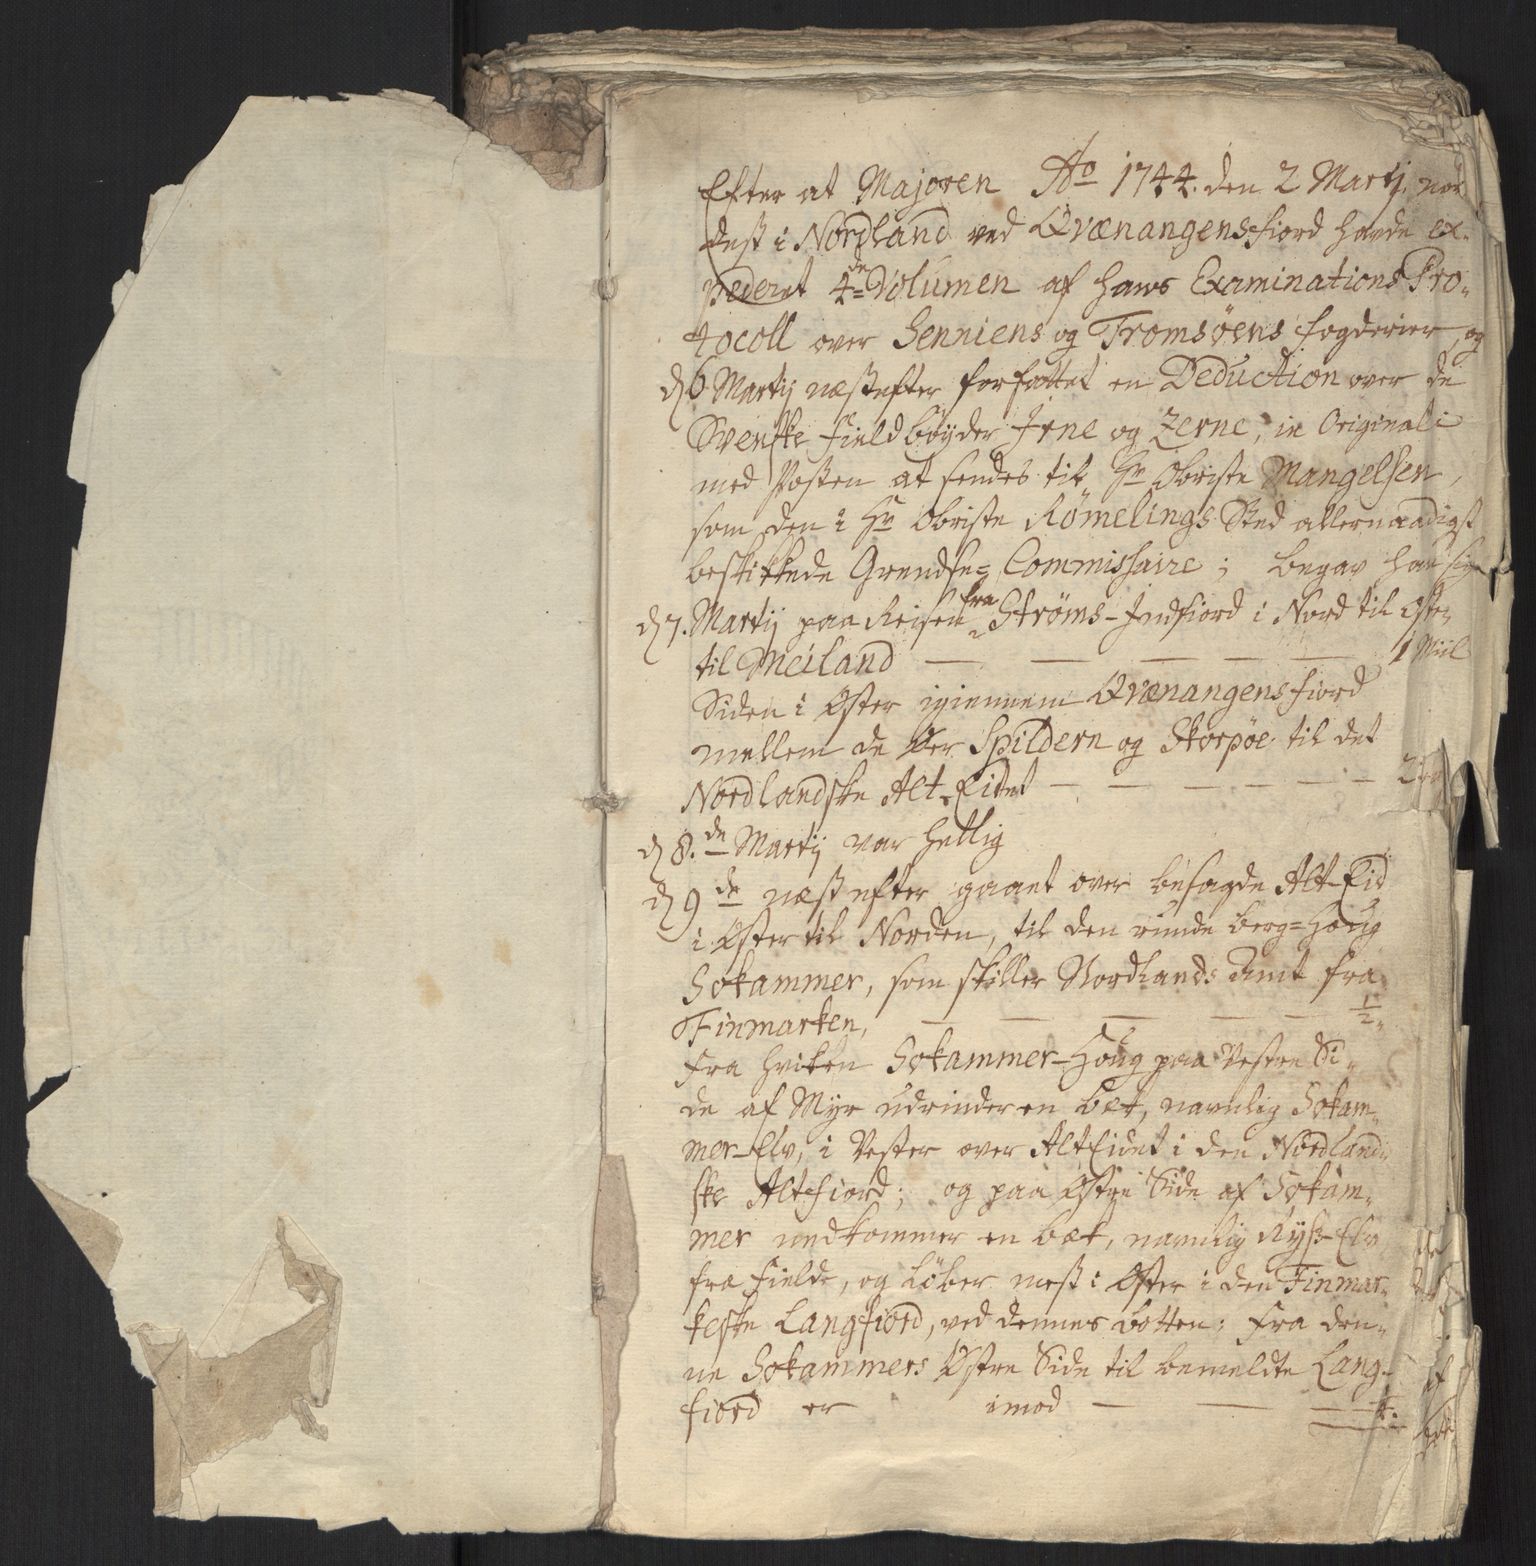 Efter at Majoren Ao 1744. den 2 Martij nor
dest i Nordland ved Qvænangensfiord havde ex-
pederet 4de Volumen af hans Examinations Pro-
tocoll over Senniens og Tromsøens fogderier, og
d 6 Martij næstefter forfattet en Deduction over de
Svenske Fieldbøyder Irne og Zerne, in Originali
med Posten at sendes til Hr Obriste Mangelsen,
som den i Hr Obriste Römelings Sted allernaadigst
beskikkede Grendse-Commissaire; begav han sig
d 7. Martij paa Reisen fra Strøms-Indfiord i Nord til Øster
til Meiland — — — — — 1 Miil
Siden i Øster igiennem Qvænangensfiord
mellem de Øer Spildern og Skorpøe til det
Nordlandske Alt-Eidet — — — — — 2
d 8.de Martij var hellig
d 9de næstefter gaaet over besagde Alt-Eid
i Øster til Norden, til den runde berg-Houg
Sokammer, som skiller Nordlands Amt fra
Finmarken, — — — — — 1/2
Fra hvilken Sokammer-Houg paa Vestre Si-
de af Myr udrinder en bæk, navnlig Sokam-
mer-Elv, i Vester over AltEidet i den Nordland-
ske Altefiord; og paa Østre Side af Sokam-
mer nedkommer en bæk, navnlig Ryss-Elv
fra Fielde, og løber mest i Øster i den Finmar-
keske Langfiord, ved dennes botten; Fra den-
ne Sokammers Østre Side til bemeldte Lang-
fiord er imod — — —